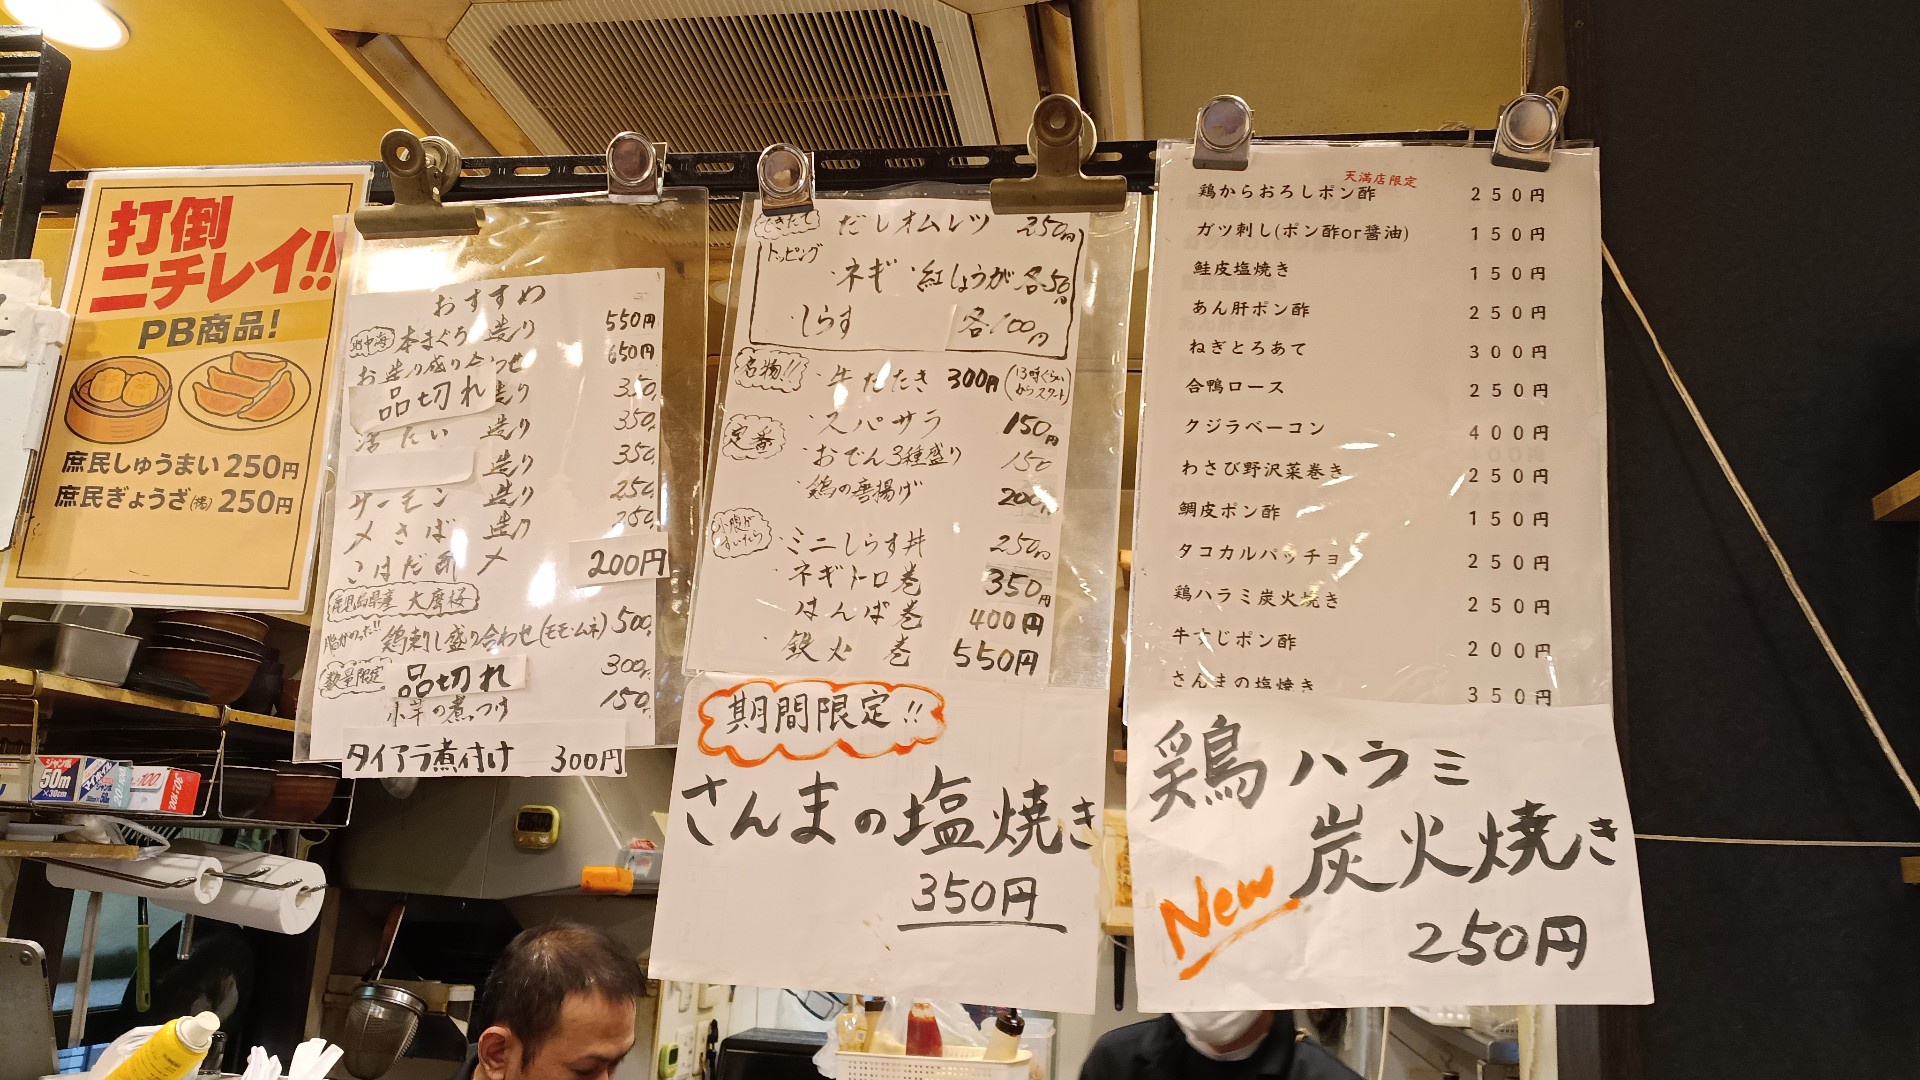 打倒
ニチレイ!!
PB商品!
庶民しゅうまい 250円
庶民ぎょうざ(揚) 250円
おすすめ
地中海 本まぐろ 造り 550円
お造り盛り合わせ 650円
品切れ 造り 350
活たい 造り 350
造り 350
サーモン 造り 250
〆さば 造り 350
こはだ酢〆 200円
鹿児島県産 大摩桜
鶏刺し盛り合わせ(モモ・ムネ) 500
数量限定 品切れ 300
小芋の煮っつけ 150
タイアラ煮付け 300円
できたて だしオムレツ 350円
トッピング
・ネギ ・紅しょうが 各50円
・しらす 各100円
名物!! ・牛たたき 300円 (13時ぐらいからスタート)
定番 ・スパサラ 150円
・おでん3種盛り 150
・鶏の唐揚げ 200
小腹がすいたら ・ミニしらす丼 250円
・ネギトロ巻 350円
・はんぱ巻 400円
・鉄火巻 550円
期間限定!!
さんまの塩焼き
350円
天満店限定
鶏からおろしポン酢 250円
ガツ刺し(ポン酢or醤油) 150円
鮭皮塩焼き 150円
あん肝ポン酢 250円
ねぎとろあて 300円
合鴨ロース 250円
クジラベーコン 400円
わさび野沢菜巻き 250円
鯛皮ポン酢 150円
タコカルパッチョ 250円
鶏ハラミ炭火焼き 250円
牛すじポン酢 200円
さんまの塩焼き 350円
鶏ハラミ
炭火焼き
New
250円
ジャンボ
50m